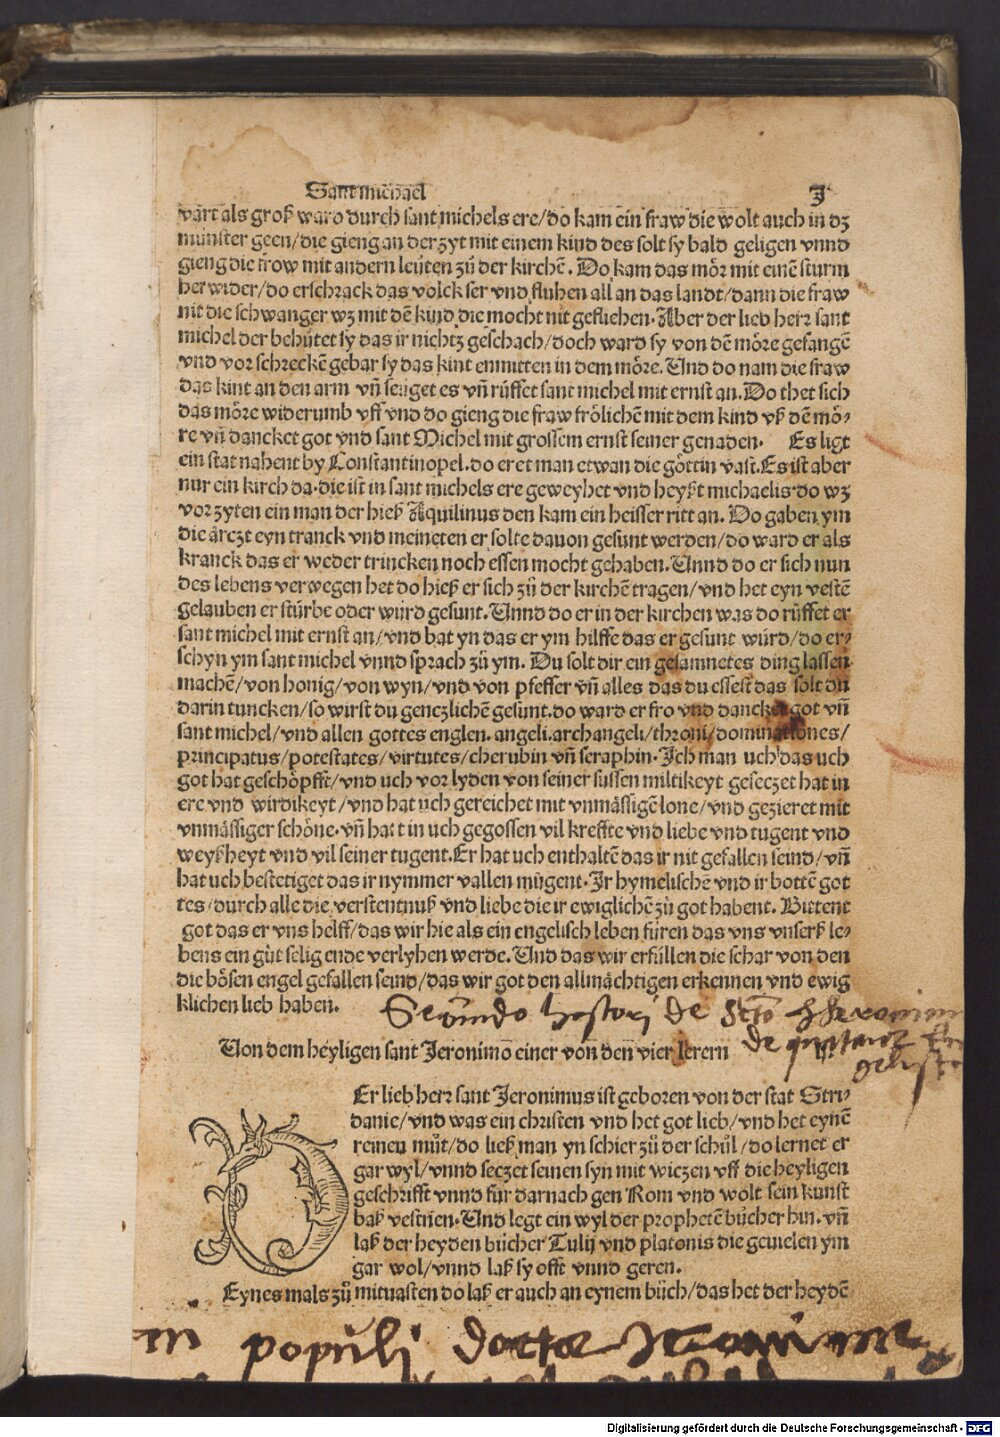 Sant michael
J
vart als groß waro durch sant michels ere/do kam ein fraw die wolt auch in dz
münster geen/die gieng an der zyt mit einem kind des solt sy bald geligen vnnd
gieng die frow mit andern leüten zů der kirchẽ. Do kam das mör mit einẽ sturm
her wider/do erschrack das volck ser vnd fluhen all an das landt/dann die fraw
nit die schwanger wz mit dẽ kind die mocht nit gefliehen. Aber der lieb herr sant
michel der behütet sy das ir nichtz geschach/doch ward sy von dẽ möre gefangẽ
vnd vor schreckẽ gebar sy das kint enmitten in dem möre. Und do nam die fraw
das kint an den arm vñ seuget es vñ rüffet sant michel mit ernst an. Do thet sich
das möre widerumb vff vnd do gieng die fraw frölichẽ mit dem kind vß dẽ mö⸗
re vñ dancket got vnd sant Michel mit grossem ernst seiner genaden. Es ligt
ein stat nahent by Constantinopel. do eret man etwan die göttin vast. Es ist aber
nur ein kirch da. die ist in sant michels ere geweyhet vnd heyßt michaelis. do wz
vor zyten ein man der hieß Aquilinus den kam ein heisser ritt an. Do gaben ym
die ärczt eyn tranck vnd meineten er solte dauon gesunt werden/do ward er als
kranck das er weder trincken noch essen mocht gehaben. Unnd do er sich nun
des lebens verwegen het do hieß er sich zů der kirchẽ tragen/vnd het eyn vestẽ
gelauben er stürbe oder würd gesunt. Unnd do er in der kirchen was do rüffet er
sant michel mit ernst an/vnd bat yn das er ym hilffe das er gesunt würd/do er⸗
schyn ym sant michel vnnd sprach zů ym. Du solt dir ein gesamnetes ding lassen
machẽ/von honig/von wyn/vnd von pfeffer vñ alles das du essest das solt du
darin tuncken/so wirst du genczlichẽ gesunt. do ward er fro vnd dancket got vñ
sant michel/vnd allen gottes englen. angeli. archangeli/throni/dominationes/
principatus/potestates/virtutes/cherubin vñ seraphin. Ich man uch das uch
got hat geschöpfft/vnd uch vor lyden von seiner süssen miltikeyt geseczet hat in
ere vnd wirdikeyt/vnd hat uch gereichet mit vnmässigẽ lone/vnd gezieret mit
vnmässiger schöne. vñ hat in uch gegossen vil kreffte vnd liebe vnd tugent vnd
weyßheyt vnd vil seiner tugent. Er hat uch enthaltẽ das ir nit gefallen seind/vñ
hat uch bestetiget das ir nymmer vallen mügent. Ir hymelischẽ vnd ir bottẽ got
tes/durch alle die verstentnuß vnd liebe die ir ewiglichẽ zů got habent. Bittent
got das er vns helff/das wir hie als ein engelisch leben füren das vns vnserß le⸗
bens ein gůt selig ende verlyhen werde. Und das wir erfüllen die schar von den
die bösen engel gefallen seind/das wir got den allmächtigen erkennen vnd ewig
klichen lieb haben.
de
Von dem heyligen sant Jeronimo einer von den vier lerern
de
Er lieb herr sant Jeronimus ist geboren von der stat Stri⸗
danie/vnd was ein christen vnd het got lieb/vnd het eynẽ
reinen můt/do ließ man yn schier zů der schůl/do lernet er
gar wyl/vnnd seczet seinen syn mit wiczen vff die heyligen
geschrifft vnnd für darnach gen Rom vnd wolt sein kunst
baß vestnen. Und legt ein wyl der prophetẽ bücher hin. vñ
laß der heyden bücher Tulij vnd platonis die geuielen ym
gar wol/vnnd laß sy offt vnnd geren.
Eynes mals zů mituasten do laß er auch an eynem bůch/das het der heydẽ
populi
Digitalisierung gefördert durch die Deutsche Forschungsgemeinschaft - DFG